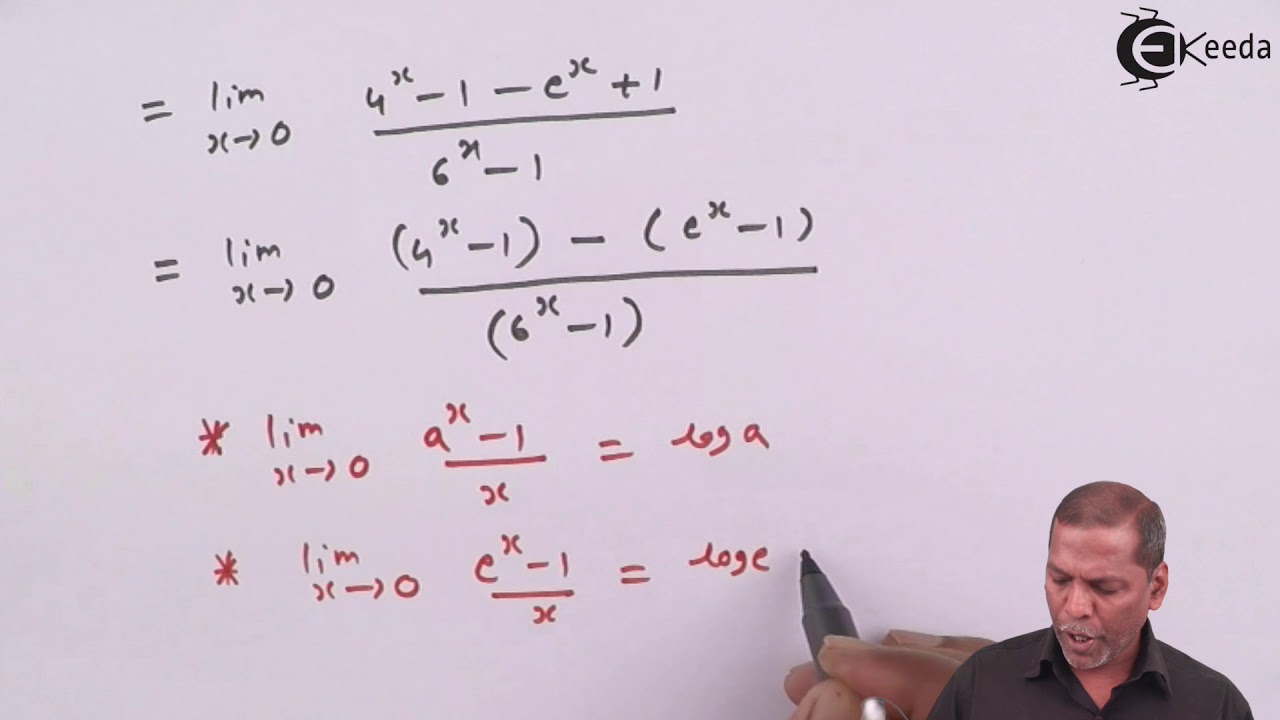 EKeeda
= lim x→0 (4^x - 1 - e^x + 1) / (6^x - 1)
= lim x→0 ((4^x - 1) - (e^x - 1)) / (6^x - 1)
* lim x→0 (a^x - 1) / x = log a
* lim x→0 (e^x - 1) / x = log e